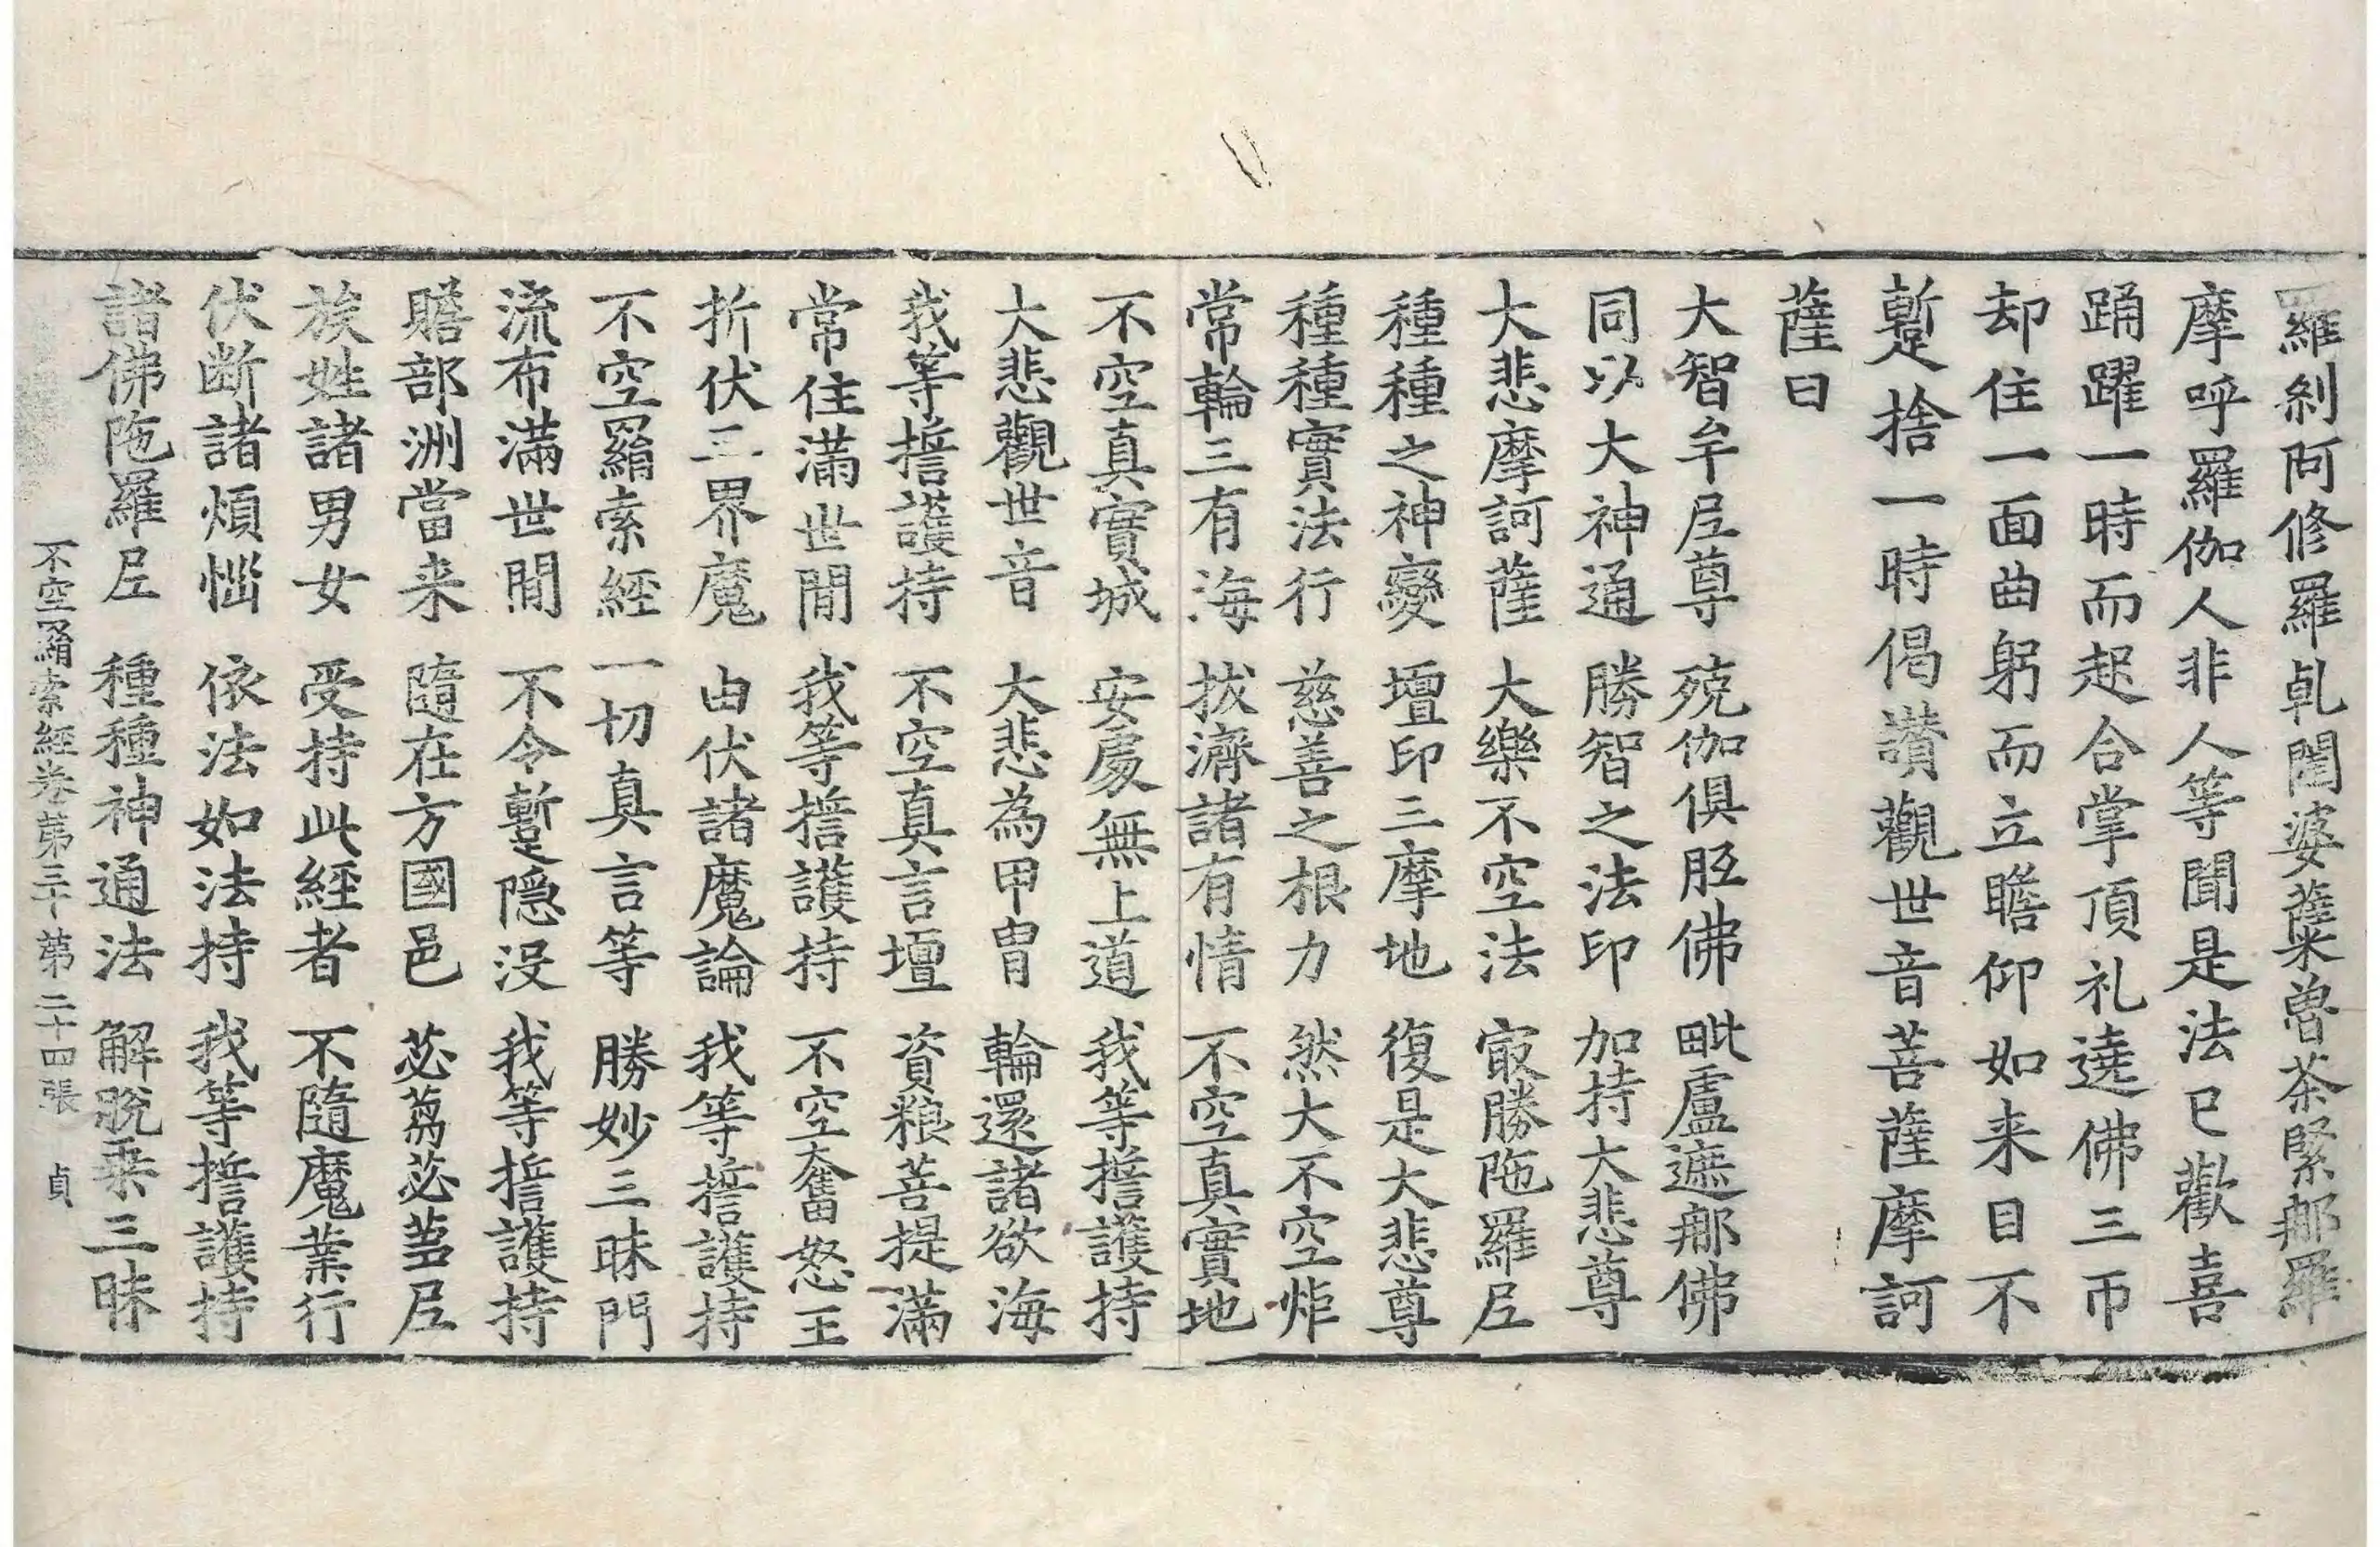 羅刹阿修羅乹闥婆蘗魯茶緊那羅
摩呼羅伽人非人等聞是法已歡喜
踊躍一時而起合掌頂礼遶佛三帀
却住一面曲躬而立瞻仰如来目不
蹔捨一時偈讃觀世音菩薩摩訶
薩曰
大智牟尼尊 殑伽俱胝佛 毗盧遮那佛
同以大神通 勝智之法印 加持大悲尊
大悲摩訶薩 大樂不空法 㝡勝陁羅尼
種種之神變 壇印三摩地 復是大悲尊
種種實法行 慈善之根力 然大不空炬
常輪三有海 拔濟諸有情 不空真實地
不空真實城 安處無上道 我等擔護持
大悲觀世音 大悲為甲冑 輪還諸欲海
我等擔護持 不空真言壇 資粮菩提滿
常住滿世間 我等擔護持 不空奮怒王
折伏三界魔 由伏諸魔論 我等擔護持
不空羂索經 一切真言等 勝妙三昧門
流布滿世間 不令蹔隱没 我等擔護持
贍部洲當来 隨在方國邑 苾蒭苾蒭尼
族姓諸男女 受持此經者 不隨魔業行
伏断諸煩惱 依法如法持 我等擔護持
諸佛陁羅尼 種種神通法 解脫乗三昧
不空羂索經卷第三十 第二十四張 貞